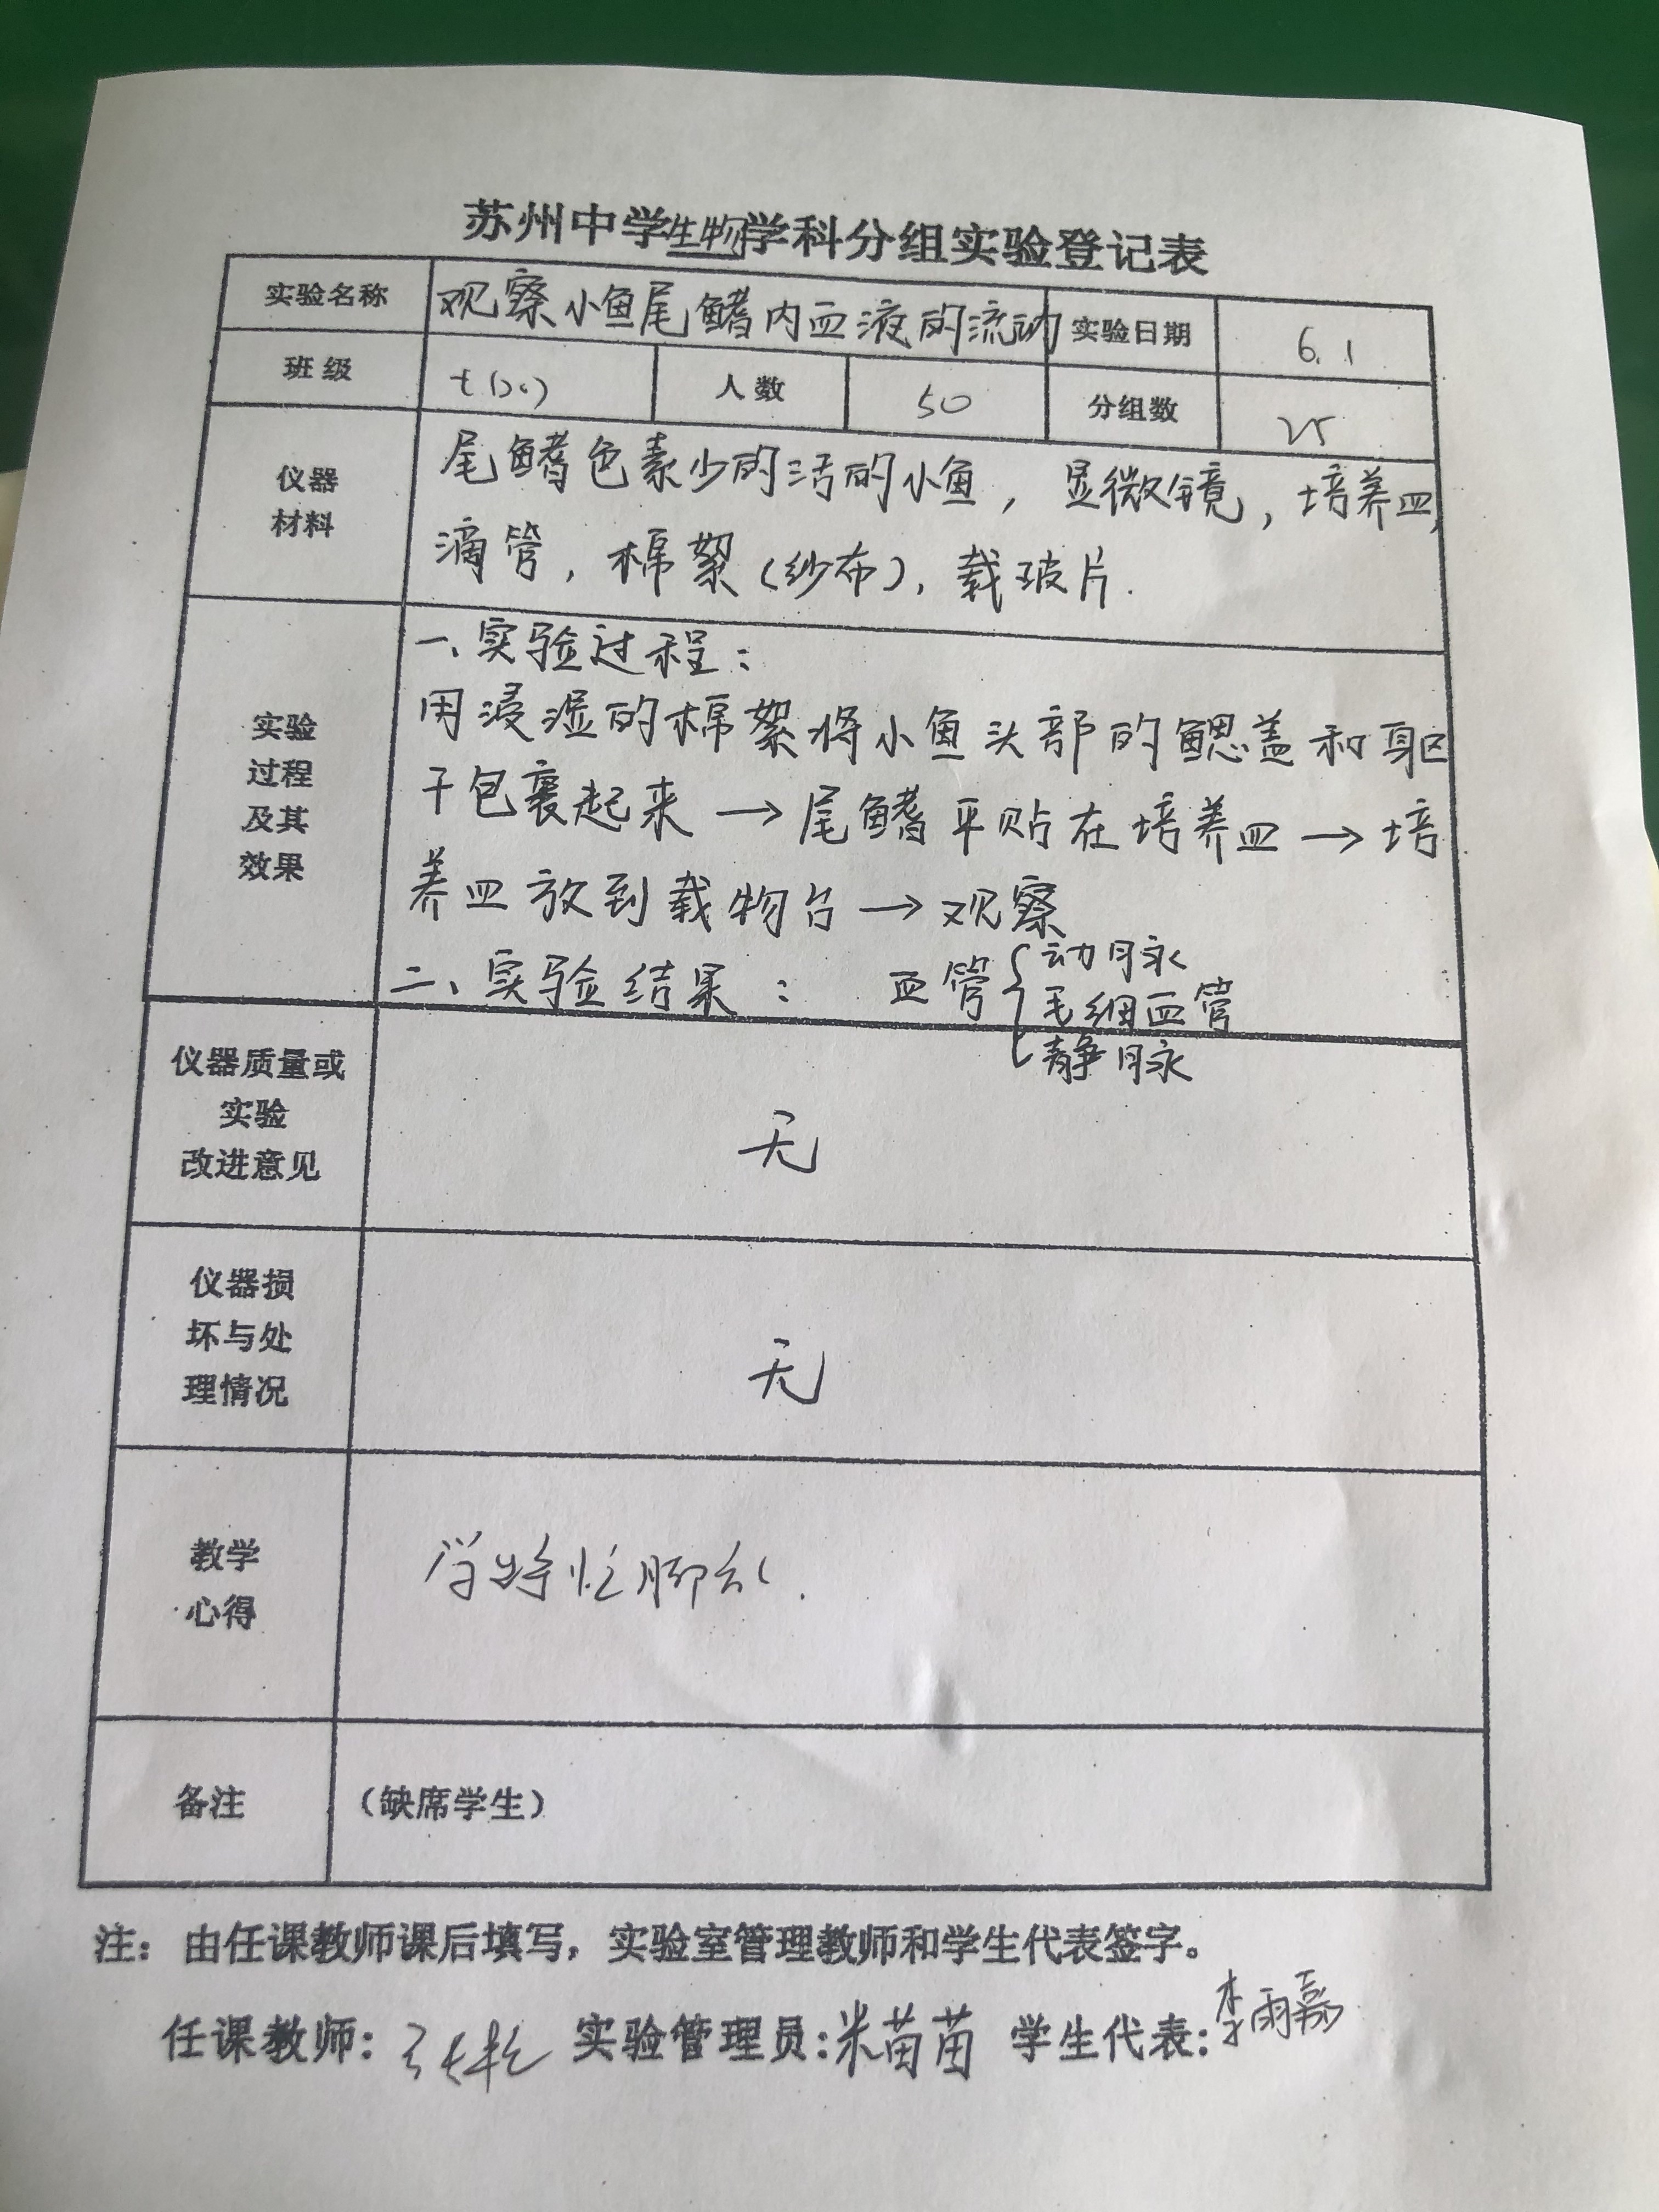 苏州中学生物学科分组实验登记表
实验名称 观察小鱼尾鳍内血液的流动 实验日期 6.1
班级 人数 50 分组数 25
仪器
材料
尾鳍色素少的活的小鱼，显微镜，培养皿，
滴管，棉絮（纱布），载玻片．
实验
过程
及其
效果
一、实验过程：
用浸湿的棉絮将小鱼头部的鳃盖和躯
干包裹起来→尾鳍平贴在培养皿→培
养皿放到载物台→观察
二、实验结果： 血管
动脉
毛细血管
静脉
仪器质量或
实验
改进意见
无
仪器损
坏与处
理情况
无
教学
心得
忙脚乱．
备注 （缺席学生）
注：由任课教师课后填写，实验室管理教师和学生代表签字。
任课教师： 实验管理员：米苗苗 学生代表：李雨嘉